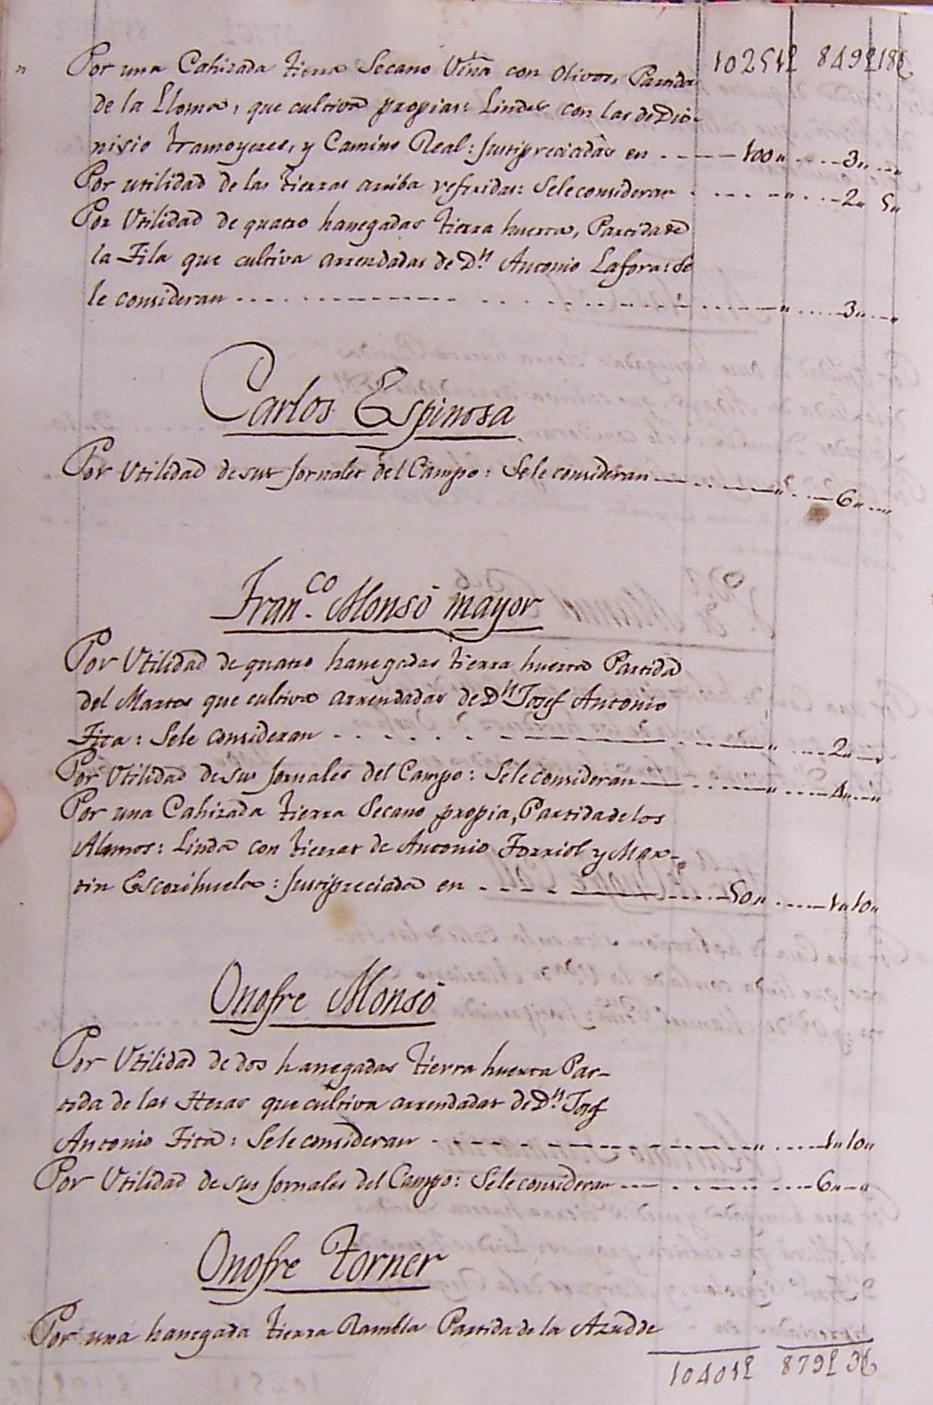 10251₤ 849₤18s
Por una Cahizada tierra Secano Viña con olivos, Partida
de la Lloma, que cultiva propias: Lindes con las de Dio-
nisio tramoyeres, y Camino Real: Justipreciadas en ..... 100 " .... 3 " .. "
Por utilidad de las tierras arriba referidas: Se le consideran ..... " .... 2 " 5 "
Por Utilidad de quatro hanegadas tierra huerta, Partida de
la Fila que cultiva arrendadas de Dn Antonio Lafora: Se
le consideran ..... " .... 3 " .. "
Carlos Espinosa
Por Utilidad de sus Jornales del Campo: Se le consideran ..... " .... 6 " .. "
Fran.co Monsó mayor
Por Utilidad de quatro hanegadas tierra huerta Partida
del Martos que cultiva arrendadas de Dn Josef Antonio
Fita: Se le consideran ..... " .... 2 " .. "
Por Utilidad de sus Jornales del Campo: Se le consideran ..... " .... 4 " .. "
Por una Cahizada tierra Secano propia, Partida de los
Alamos: Linda con tierras de Antonio Forriol y Mar-
tin Escorihuela: Justipreciada en ..... 50 " .... 1 " 10 "
Onofre Monsó
Por Utilidad de dos hanegadas tierra huerta Par-
tida de las Heras que cultiva arrendadas de Dn Josef
Antonio Fita: Se le consideran ..... " .... 1 " 10 "
Por Utilidad de sus Jornales del Campo: Se le consideran ..... 6 " .. "
Onofre Torner
Por una hanegada tierra Rambla Partida de la Azudde
10401₤ 879₤ 3s